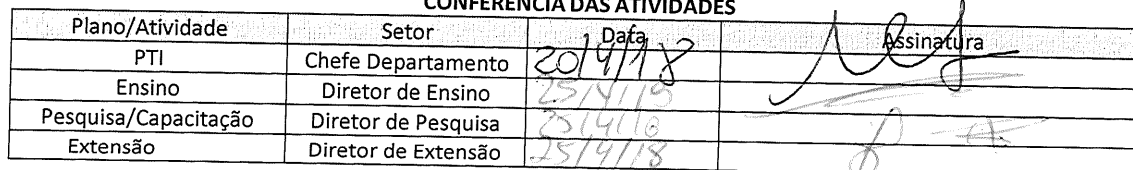 CONFERÊNCIA DAS ATIVIDADES
Plano/Atividade Setor Data Assinatura
PTI Chefe Departamento 20/4/18
Ensino Diretor de Ensino 25/4/18
Pesquisa/Capacitação Diretor de Pesquisa 25/4/18
Extensão Diretor de Extensão 25/4/18